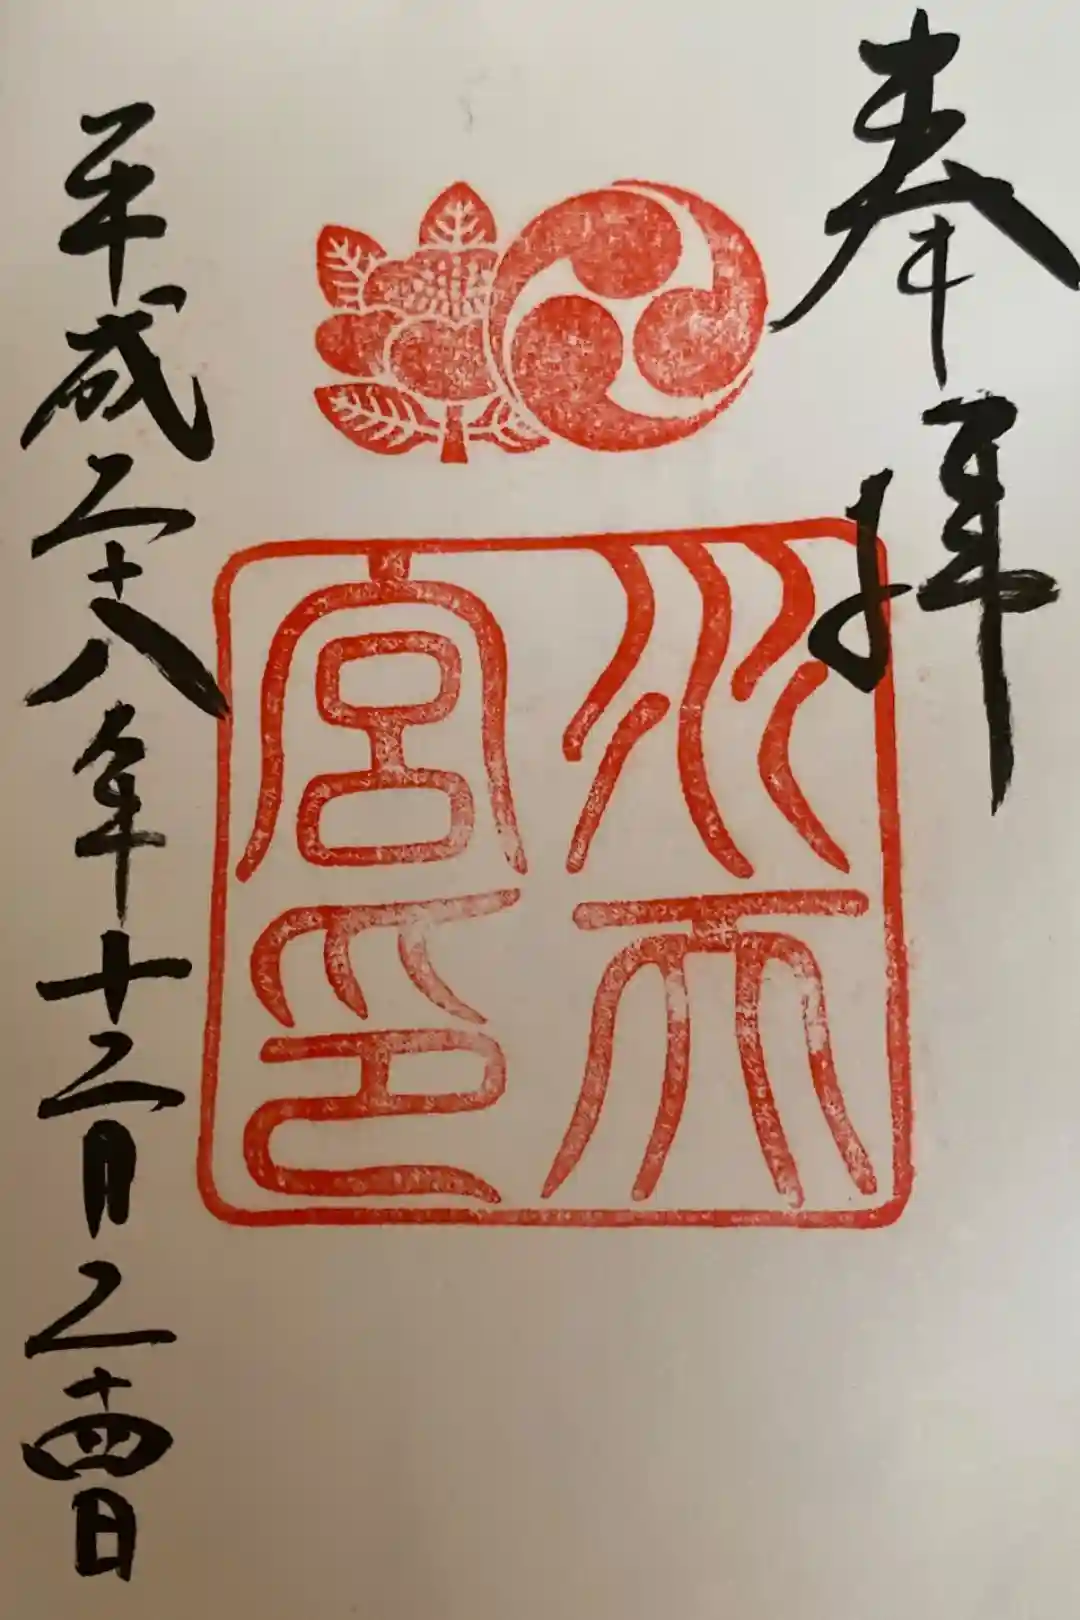 奉拝
水天
宮印
平成二十八年十二月二十四日